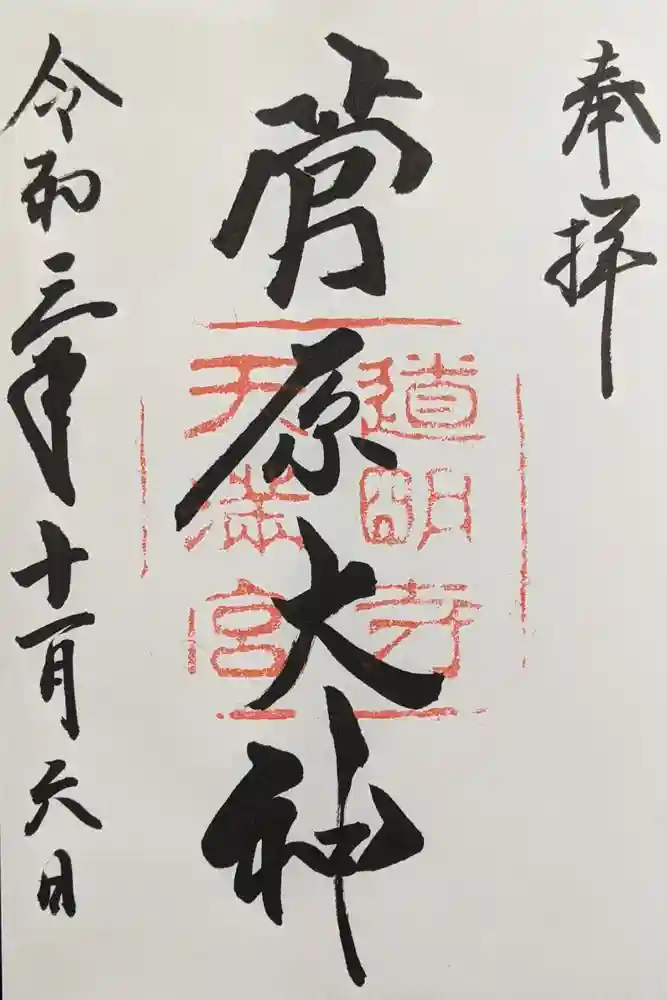 奉拝
菅原大神
道明寺
天満宮
令和三年十一月六日